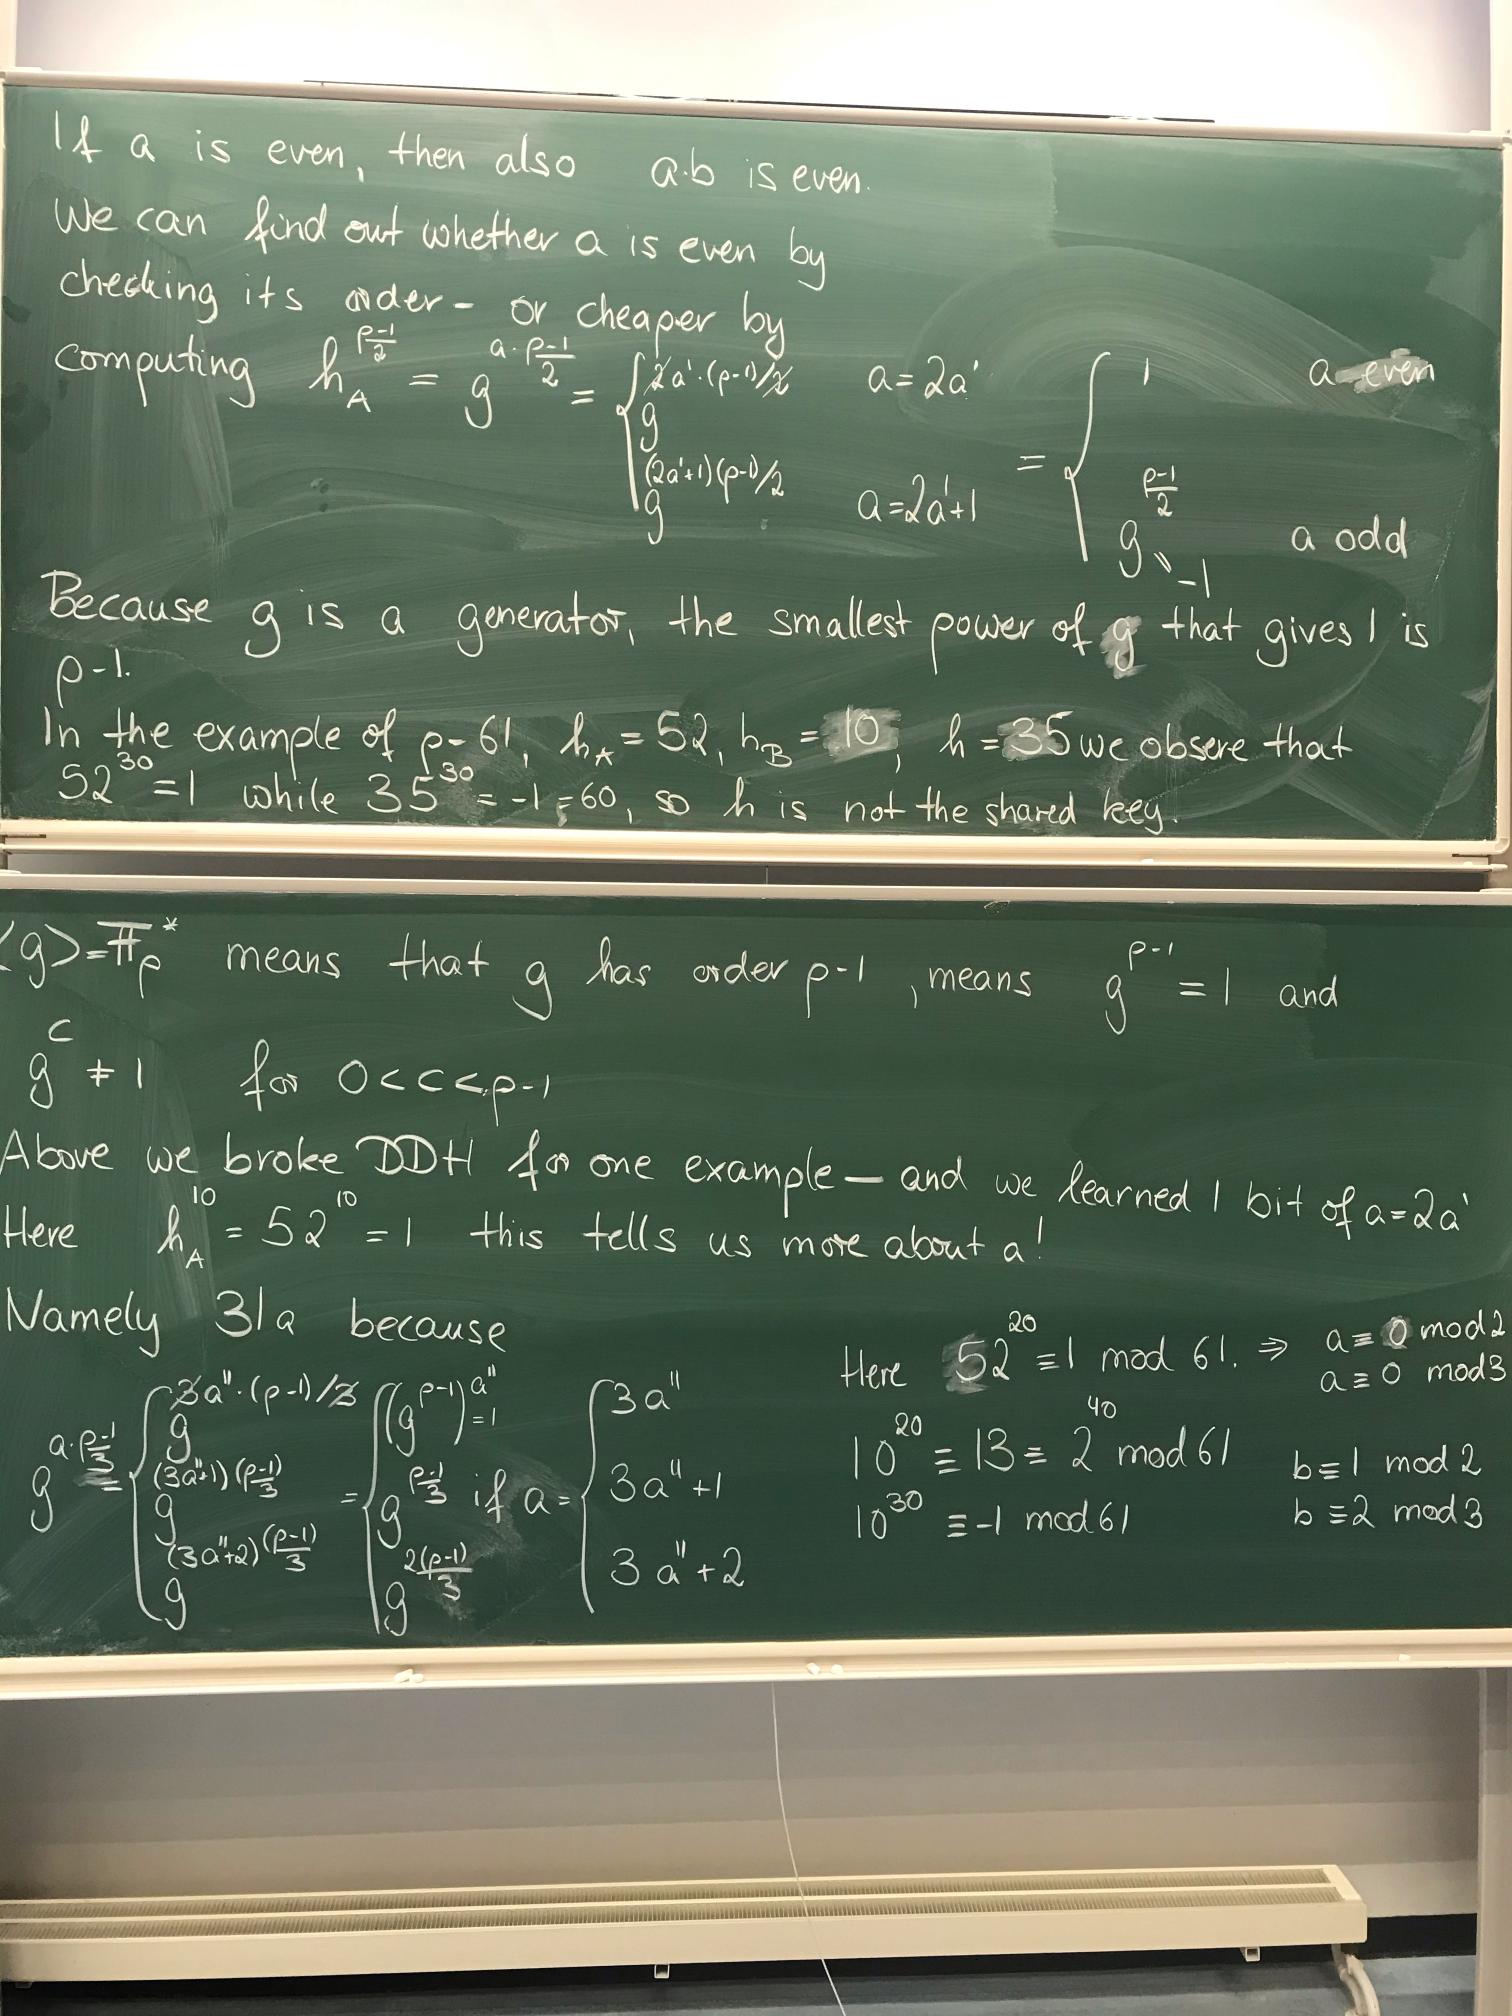 If a is even, then also a·b is even.
We can find out whether a is even by
checking its order - or cheaper by
computing h_A^{(p-1)/2} = g^{a·(p-1)/2} = { g^{2a'·(p-1)/2} a=2a' ; g^{(2a'+1)(p-1)/2} a=2a'+1 } = { 1 a even ; g^{(p-1)/2} = -1 a odd }
Because g is a generator, the smallest power of g that gives 1 is
p-1.
In the example of p=61, h_A=52, h_B=10, h=35 we obsere that
52^{30}=1 while 35^{30}=-1=60, so h is not the shared key.
<g>=𝔽_p^* means that g has order p-1, means g^{p-1}=1 and
g^c ≠ 1 for 0<c<p-1
Above we broke DDH for one example — and we learned 1 bit of a=2a'
Here h_A^{10} = 52^{10} = 1 this tells us more about a!
Namely 3|a because
g^{a·(p-1)/3} = { g^{3a''·(p-1)/3} ; g^{(3a''+1)((p-1)/3)} ; g^{(3a''+2)((p-1)/3)} } = { (g^{p-1})^{a''}=1 ; g^{(p-1)/3} ; g^{2(p-1)/3} } if a = { 3a'' ; 3a''+1 ; 3a''+2 }
Here 52^{20} ≡ 1 mod 61. ⇒ a ≡ 0 mod 2
a ≡ 0 mod 3
10^{20} ≡ 13 ≡ 2^{40} mod 61 b ≡ 1 mod 2
10^{30} ≡ -1 mod 61 b ≡ 2 mod 3